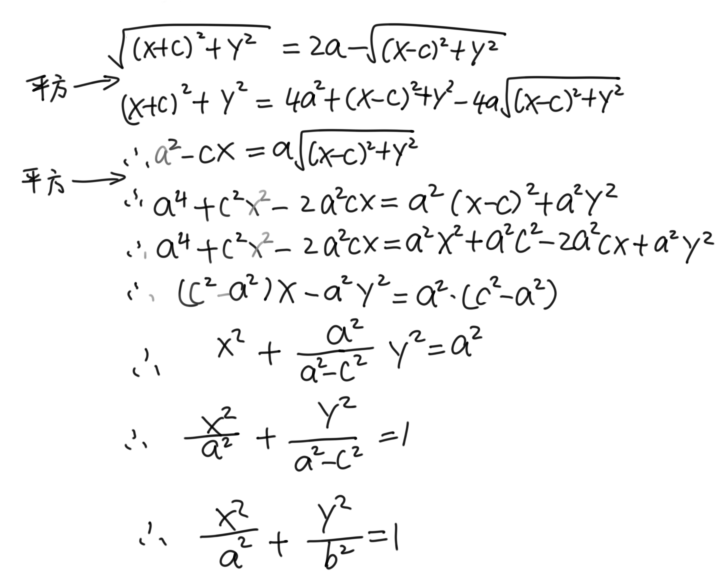 √((x+c)²+y²) = 2a-√((x-c)²+y²)
平方→
(x+c)²+y² = 4a²+(x-c)²+y²-4a√((x-c)²+y²)
∴a²-cx = a√((x-c)²+y²)
平方→
∴a⁴+c²x²-2a²cx = a²(x-c)²+a²y²
∴a⁴+c²x²-2a²cx = a²x²+a²c²-2a²cx+a²y²
∴(c²-a²)x-a²y² = a²·(c²-a²)
∴x²+a²/(a²-c²) y² = a²
∴x²/a²+y²/(a²-c²) = 1
∴x²/a²+y²/b² = 1